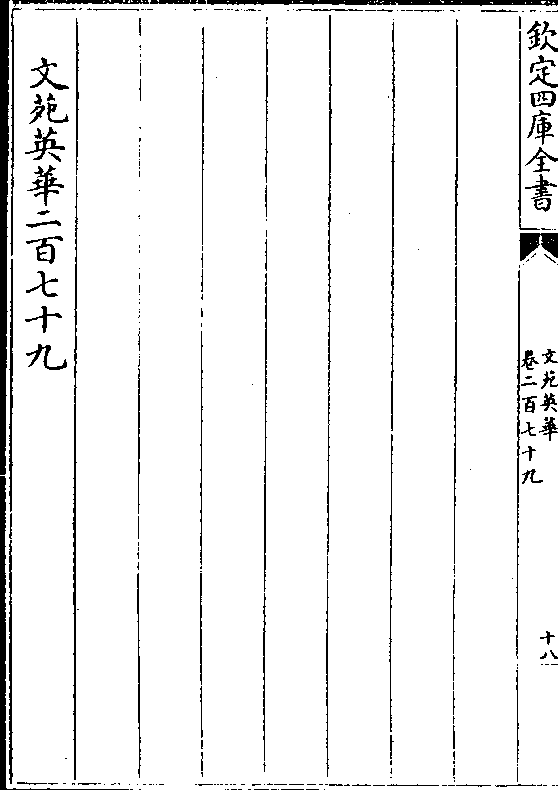 欽定四庫全書
文苑英華
卷二百七十九
十八
文苑英華二百七十九